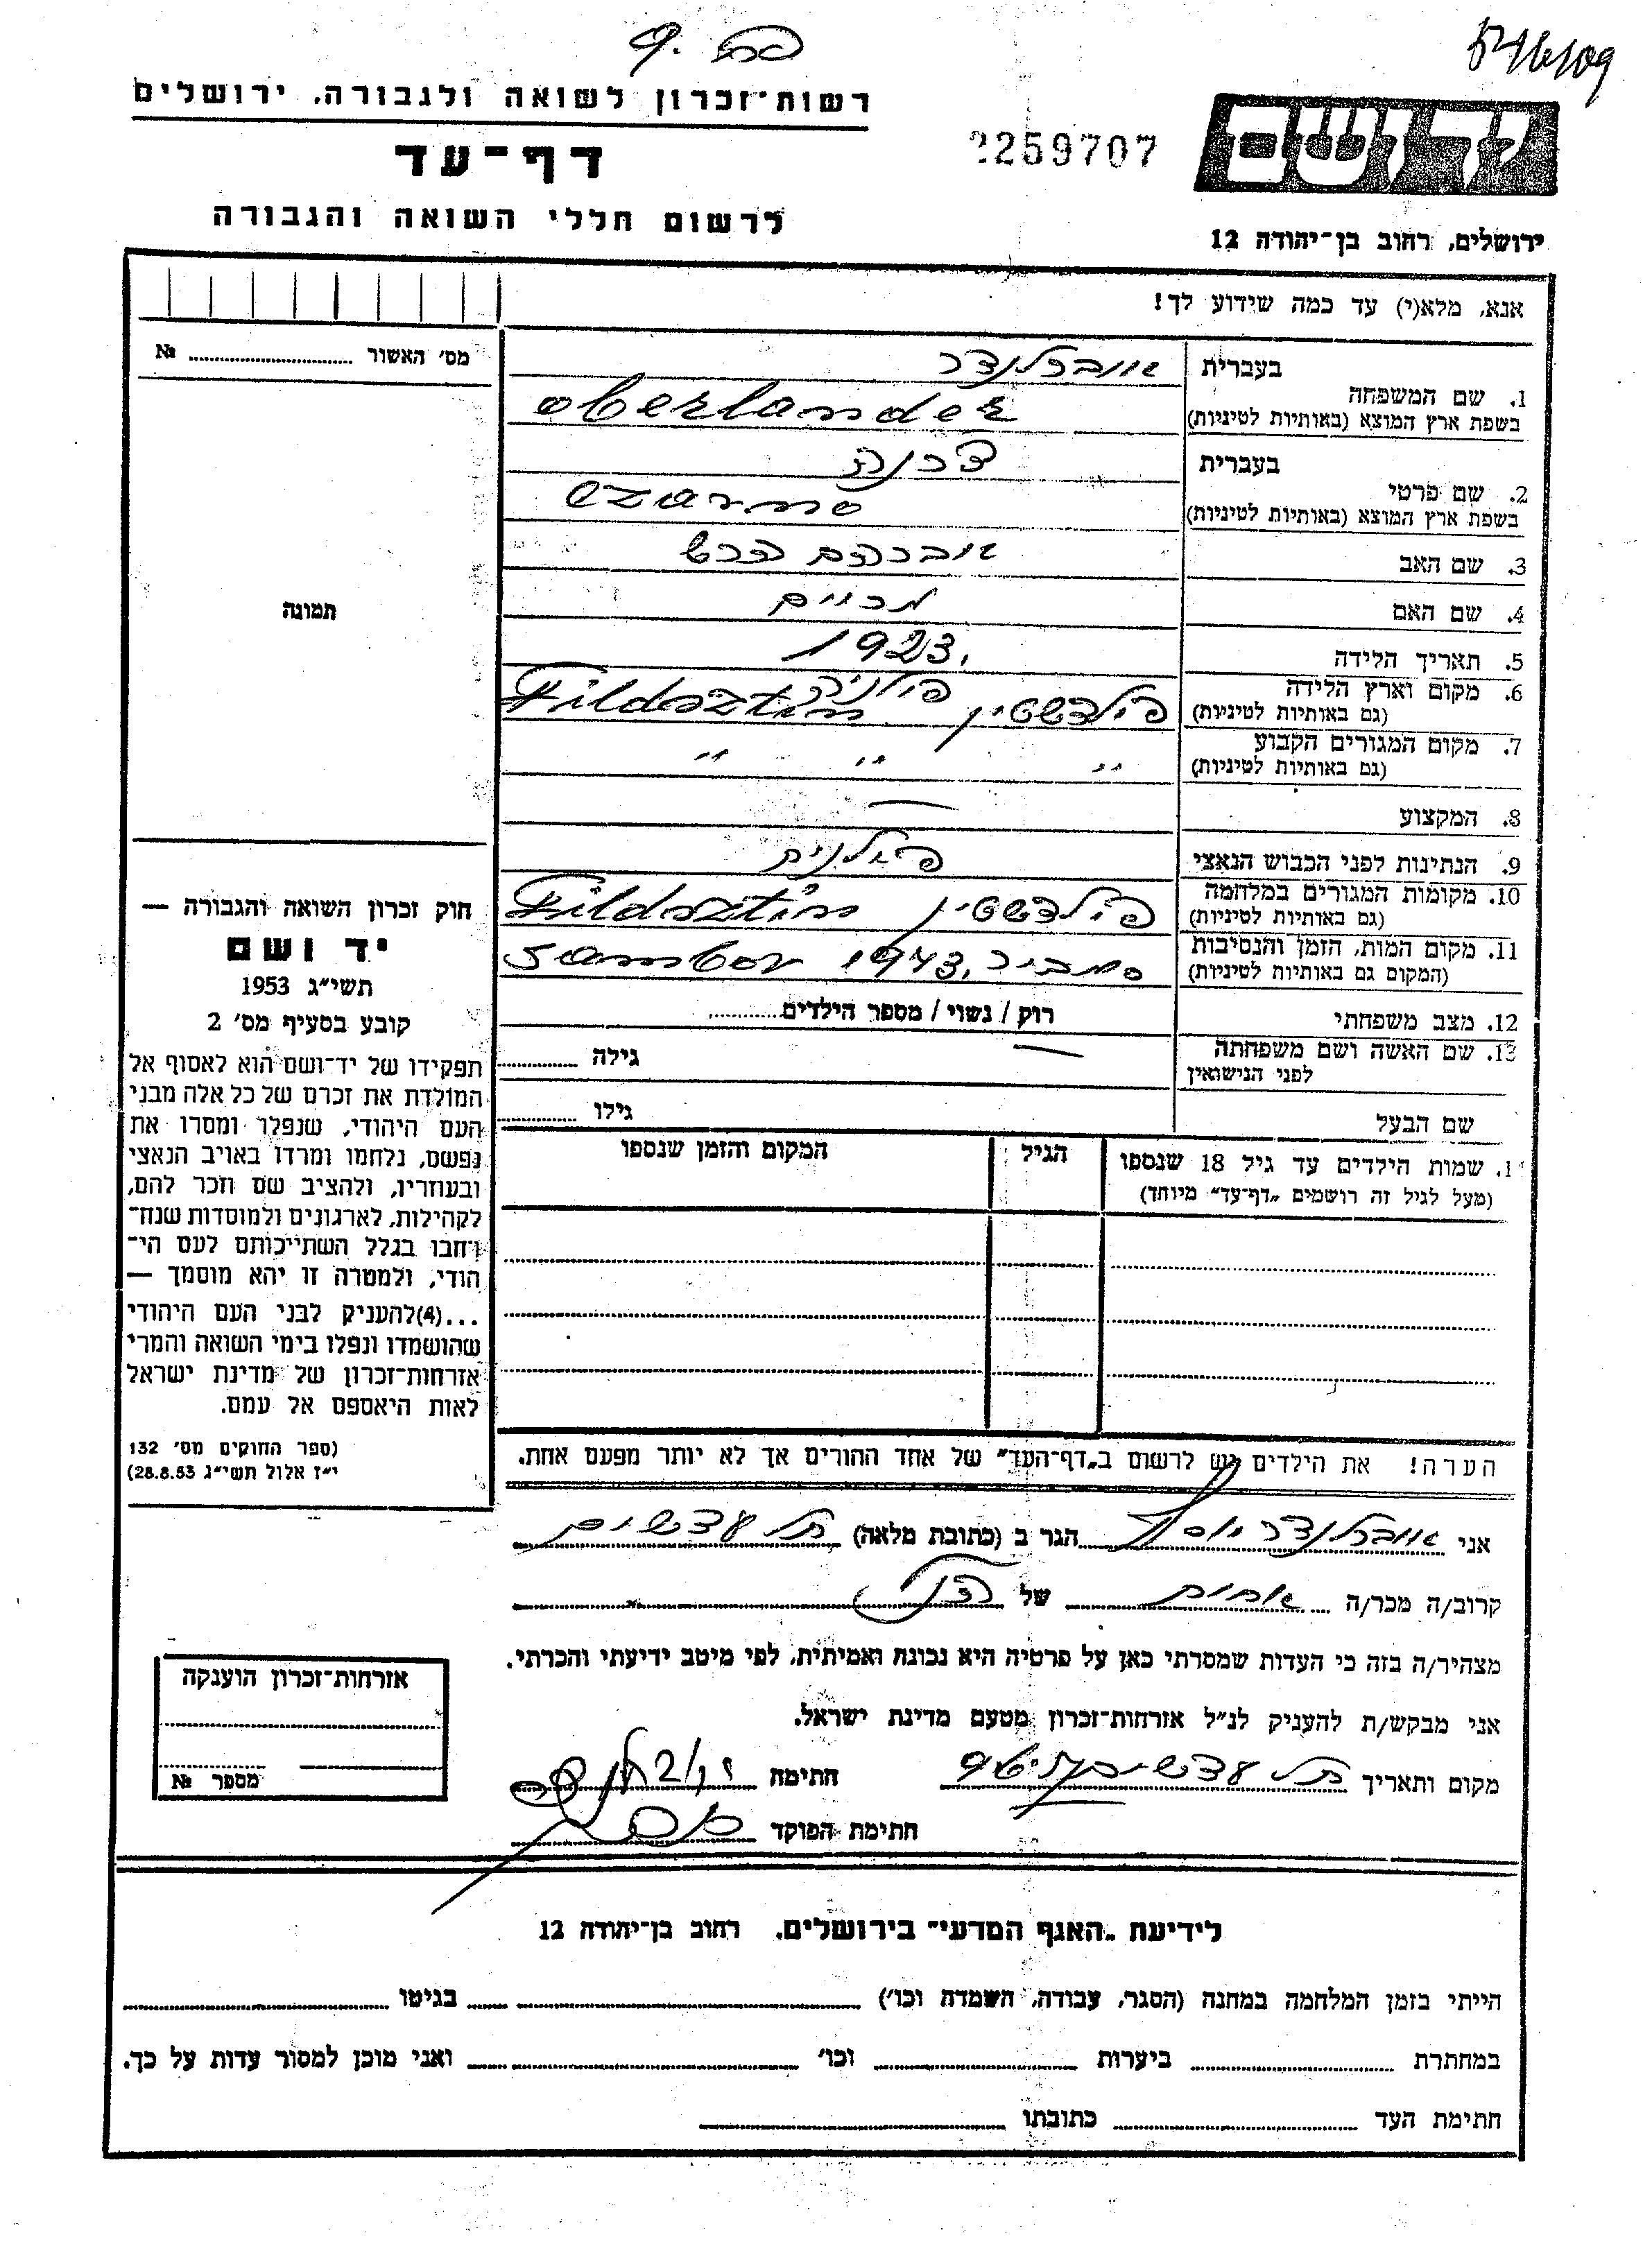 רשות־זכרון לשואה ולגבורה, ירושלים
דף־עד
לרשום חללי השואה והגבורה
2259707
ירושלים, רחוב בן־יהודה 12
אנא, מלא(י) עד כמה שידוע לך!
מס׳ האשור № ........
1. שם המשפחה
בעברית אוברלנדר
בשפת ארץ המוצא (באותיות לטיניות) oberlander
2. שם פרטי
בעברית צרנה
בשפת ארץ המוצא (באותיות לטיניות) czarno
3. שם האב אברהם הרש
4. שם האם מרים
5. תאריך הלידה 1923.
6. מקום וארץ הלידה פולניה
(גם באותיות לטיניות) פילדשטין Fildsztin
7. מקום המגורים הקבוע
(גם באותיות לטיניות) " " "
8. המקצוע —
9. הנתינות לפני הכבוש הנאצי פולנית
10. מקומות המגורים במלחמה
(גם באותיות לטיניות) פילדשטין Fildsztin
11. מקום המות, הזמן והנסיבות
(המקום גם באותיות לטיניות) סמביר 1943, Sambor
12. מצב משפחתי רוק / נשוי / מספר הילדים........
13. שם האשה ושם משפחתה
לפני הנישואין — גילה ........
שם הבעל גילו ........
שמות הילדים עד גיל 18 שנספו
(מעל לגיל זה רושמים „דף־עד״ מיוחד)
הגיל
המקום והזמן שנספו
הערה! את הילדים יש לרשום ב„דף־העד״ של אחד ההורים אך לא יותר מפעם אחת.
תמונה
חוק זכרון השואה והגבורה —
יד ושם
תשי״ג 1953
קובע בסעיף מס׳ 2
תפקידו של יד־ושם הוא לאסוף אל
המולדת את זכרם של כל אלה מבני
העם היהודי, שנפלו ומסרו את
נפשם, נלחמו ומרדו באויב הנאצי
ובעוזריו, ולהציב שם וזכר להם,
לקהילות, לארגונים ולמוסדות שנח־
רבו בגלל השתייכותם לעם הי־
הודי, ולמטרה זו יהא מוסמך —
...(4)להעניק לבני העם היהודי
שהושמדו ונפלו בימי השואה והמרי
אזרחות־זכרון של מדינת ישראל
לאות היאספם אל עמם.
(ספר החוקים מס׳ 132
י״ז אלול תשי״ג 28.8.53)
אני אוברלנדר יוסף הגר ב (כתובת מלאה) תל עדשים
קרוב/ה מכר/ה אחות של הנ״ל
מצהיר/ה בזה כי העדות שמסרתי כאן על פרטיה היא נכונה ואמיתית, לפי מיטב ידיעתי והכרתי.
אני מבקש/ת להעניק לנ״ל אזרחות־זכרון מטעם מדינת ישראל.
מקום ותאריך תל עדשים חתימה
חתימת הפוקד
אזרחות־זכרון הוענקה
מספר №
לידיעת „האגף המדעי״ בירושלים, רחוב בן־יהודה 12
הייתי בזמן המלחמה במחנה (הסגר, עבודה, השמדה וכו׳) ........ בגיטו ........
במחתרת ........ ביערות ........ וכו׳ ........ ואני מוכן למסור עדות על כך.
חתימת העד ........ כתובתו ........